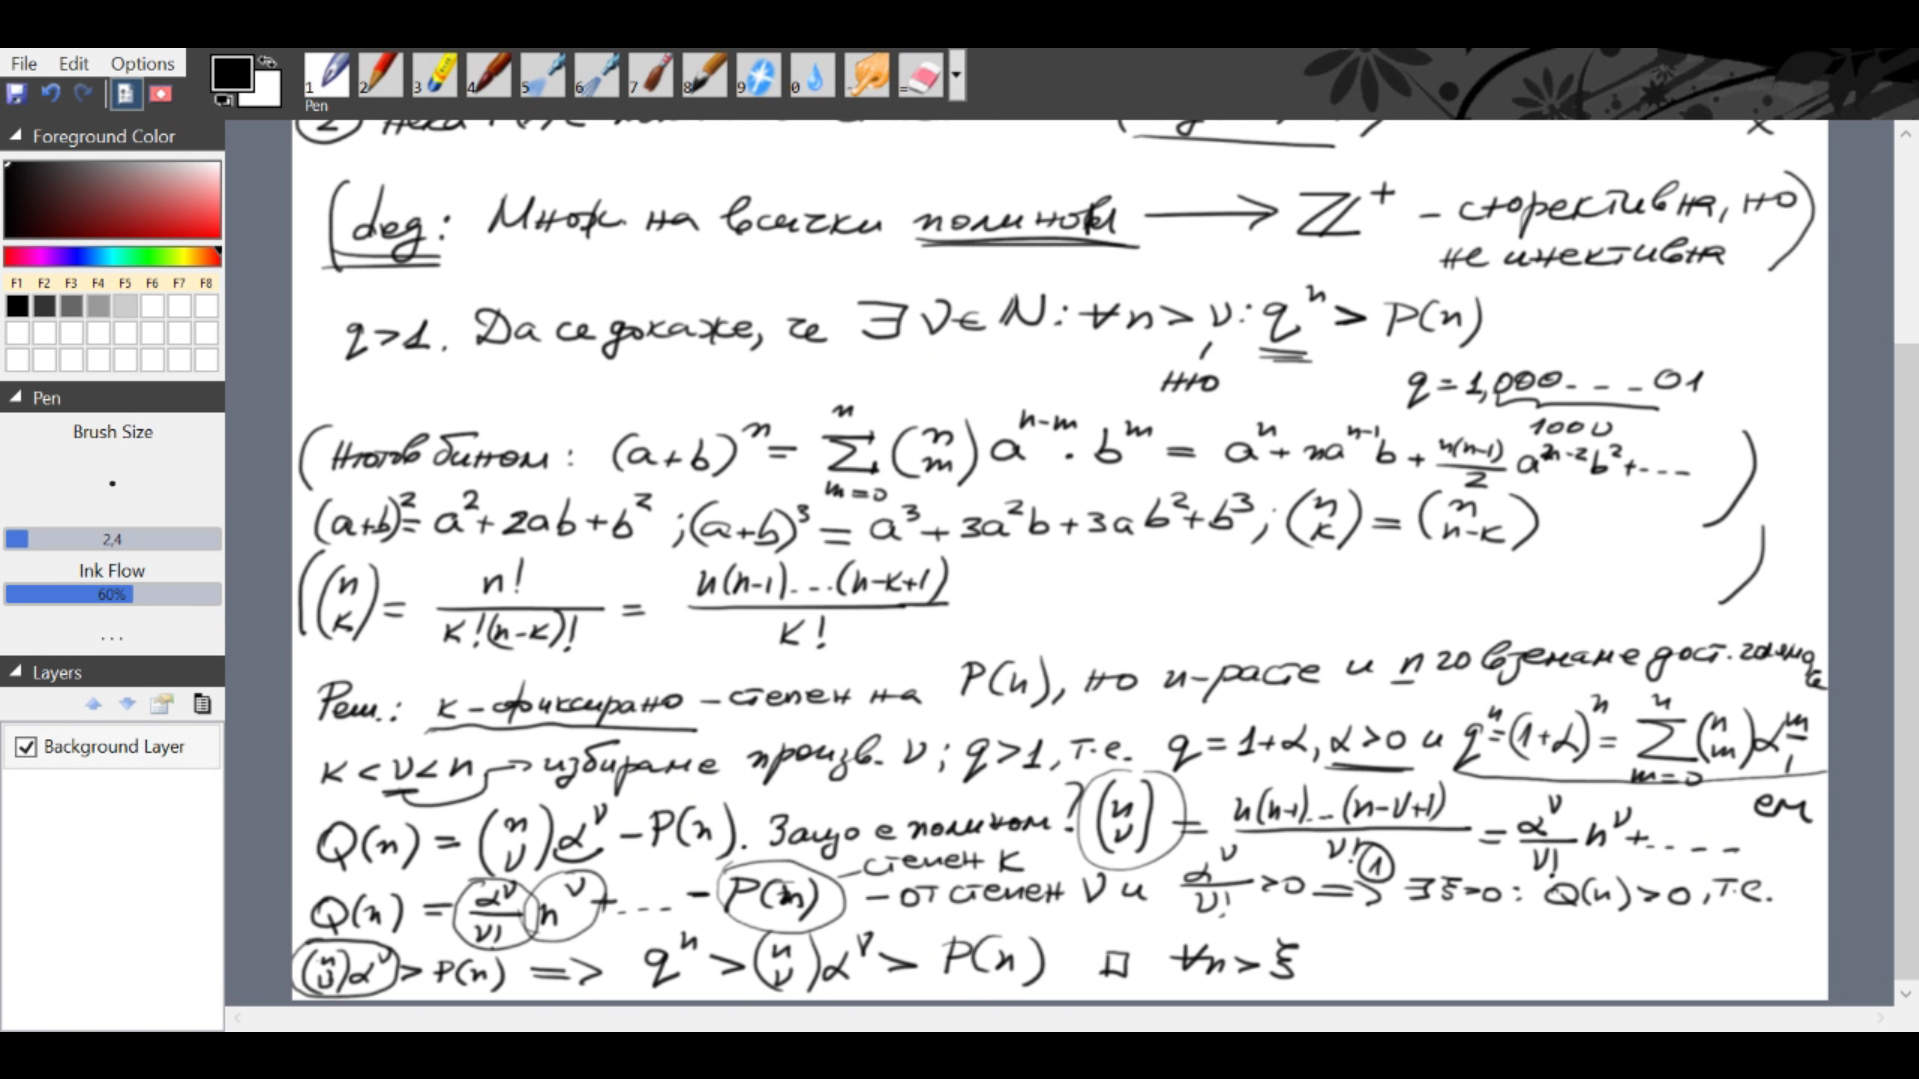 File Edit Options
1 2 3 4 5 6 7 8 9 0 - =
Pen
Foreground Color
F1 F2 F3 F4 F5 F6 F7 F8
Pen
Brush Size
2,4
Ink Flow
60%
...
Layers
Background Layer
(2) Нека
(deg: Множ. на всички полиноми ⟶ ℤ⁺ - сюрективна, но
не инективна)
q>1. Да се докаже, че ∃ ν∈N: ∀n > ν: qⁿ > P(n)
ню
q = 1,000...01
1000
(Нютов бином: (a+b)ⁿ = Σₘ₌₀ⁿ (n m) aⁿ⁻ᵐ · bᵐ = aⁿ + naⁿ⁻¹b + n(n-1)/2 a²ⁿ⁻²b² + ...
(a+b)² = a² + 2ab + b² ; (a+b)³ = a³ + 3a²b + 3ab² + b³ ; (n k) = (n n-k) )
((n k) = n!/k!(n-k)! = n(n-1)...(n-k+1)/k! )
Реш.: k - фиксирано - степен на P(n), но n - расте и n го вземаме дост. голямо, че
k < ν < n → избираме произв. ν ; q>1, т.е. q = 1+α, α>0 и qⁿ = (1+α)ⁿ = Σₘ₌₀ⁿ (n m) αᵐ
Q(n) = (n ν) αᵛ - P(n). Защо е полином? (n ν) = n(n-1)...(n-ν+1)/ν! = αᵛ/ν! nᵛ + ....
- степен k
Q(n) = αᵛ/ν! nᵛ + ... - P(n) - от степен ν и αᵛ/ν! >0 ⇒ (1) ∃ξ>0 : Q(n) > 0, т.е.
(n ν) αᵛ > P(n) ⇒ qⁿ > (n ν) αᵛ > P(n) □ ∀n > ξ